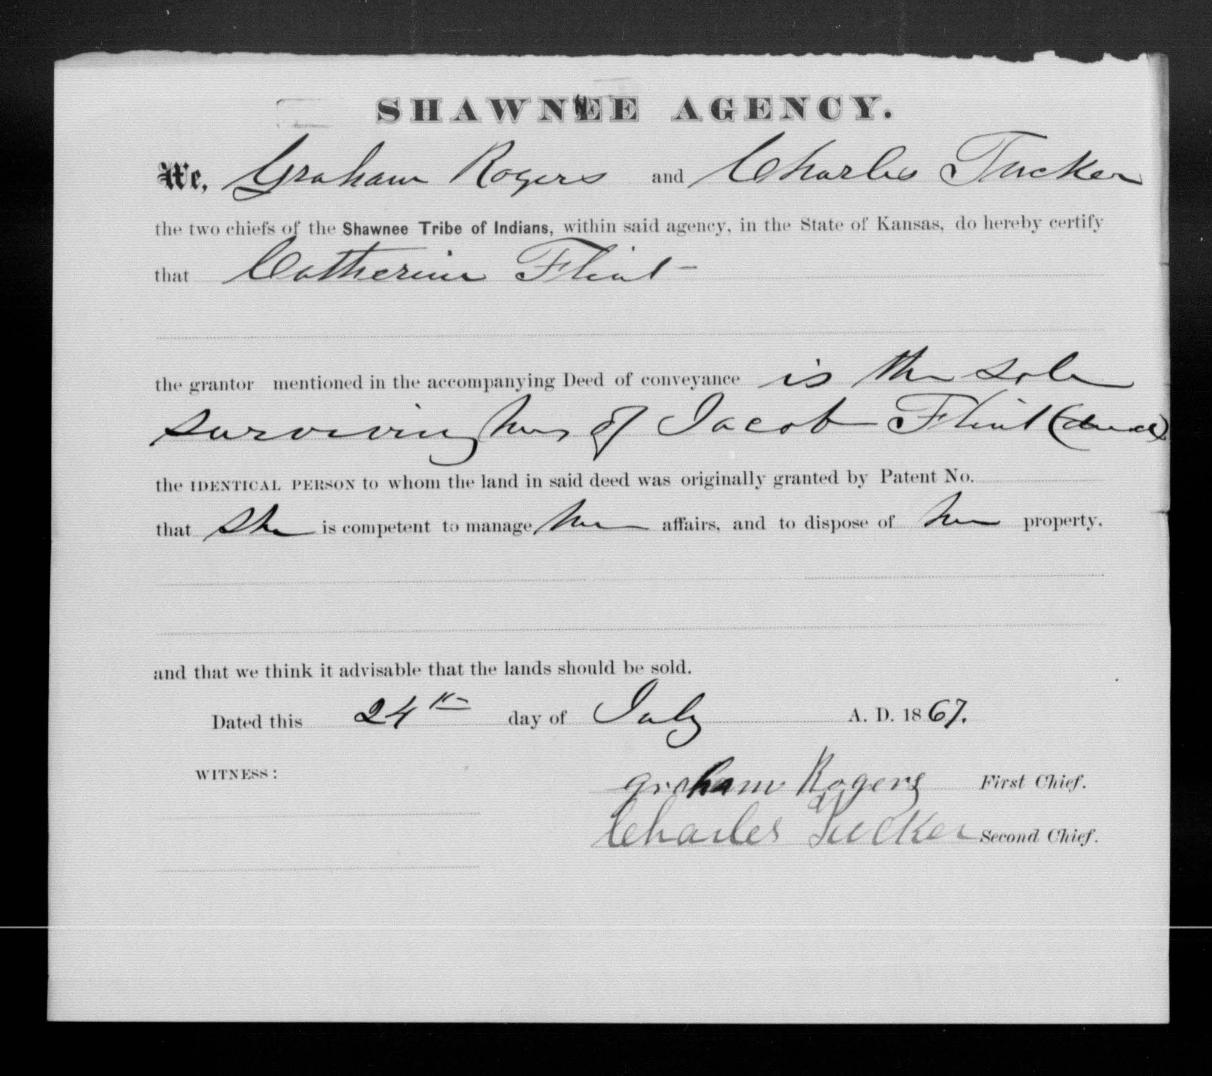 SHAWNEE AGENCY.
We, Graham Rogers and Charles Tucker
the two chiefs of the Shawnee Tribe of Indians, within said agency, in the State of Kansas, do hereby certify
that Catherine Flint
the grantor mentioned in the accompanying Deed of conveyance is the sole
surviving heir of Jacob Flint (decd)
the IDENTICAL PERSON to whom the land in said deed was originally granted by Patent No.
that she is competent to manage her affairs, and to dispose of her property.
and that we think it advisable that the lands should be sold.
Dated this 24th day of July A. D. 1867.
WITNESS:
Graham Rogers First Chief.
Charles Tucker Second Chief.